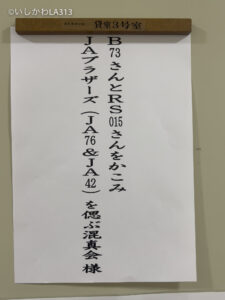 ©いしかわLA313
貸室3号室
B73さんとRS015さんをかこみ
JAブラザーズ(JA76&JA42)を偲ぶ混真会 様